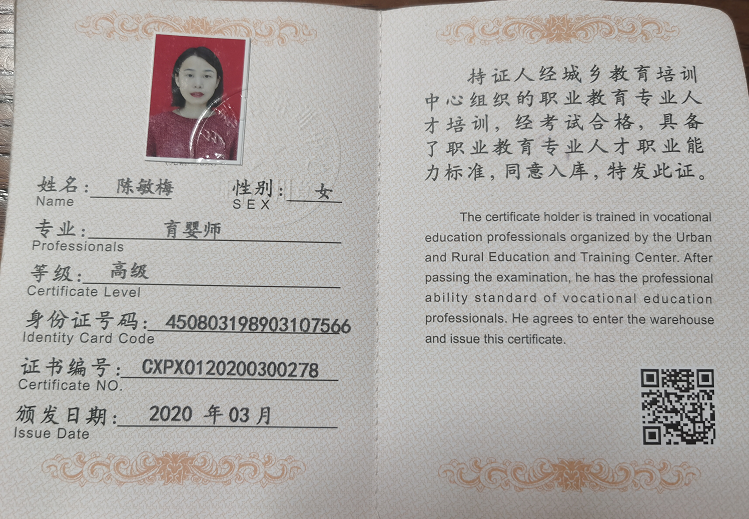 姓名： 陈敏梅 性别： 女
Name SEX
专业： 育婴师
Professionals
等级： 高级
Certificate Level
身份证号码： 450803198903107566
Identity Card Code
证书编号： CXPX0120200300278
Certificate NO.
颁发日期： 2020 年 03 月
Issue Date
持证人经城乡教育培训
中心组织的职业教育专业人
才培训，经考试合格，具备
了职业教育专业人才职业能
力标准，同意入库，特发此证。
The certificate holder is trained in vocational
education professionals organized by the Urban
and Rural Education and Training Center. After
passing the examination, he has the professional
ability standard of vocational education
professionals. He agrees to enter the warehouse
and issue this certificate.